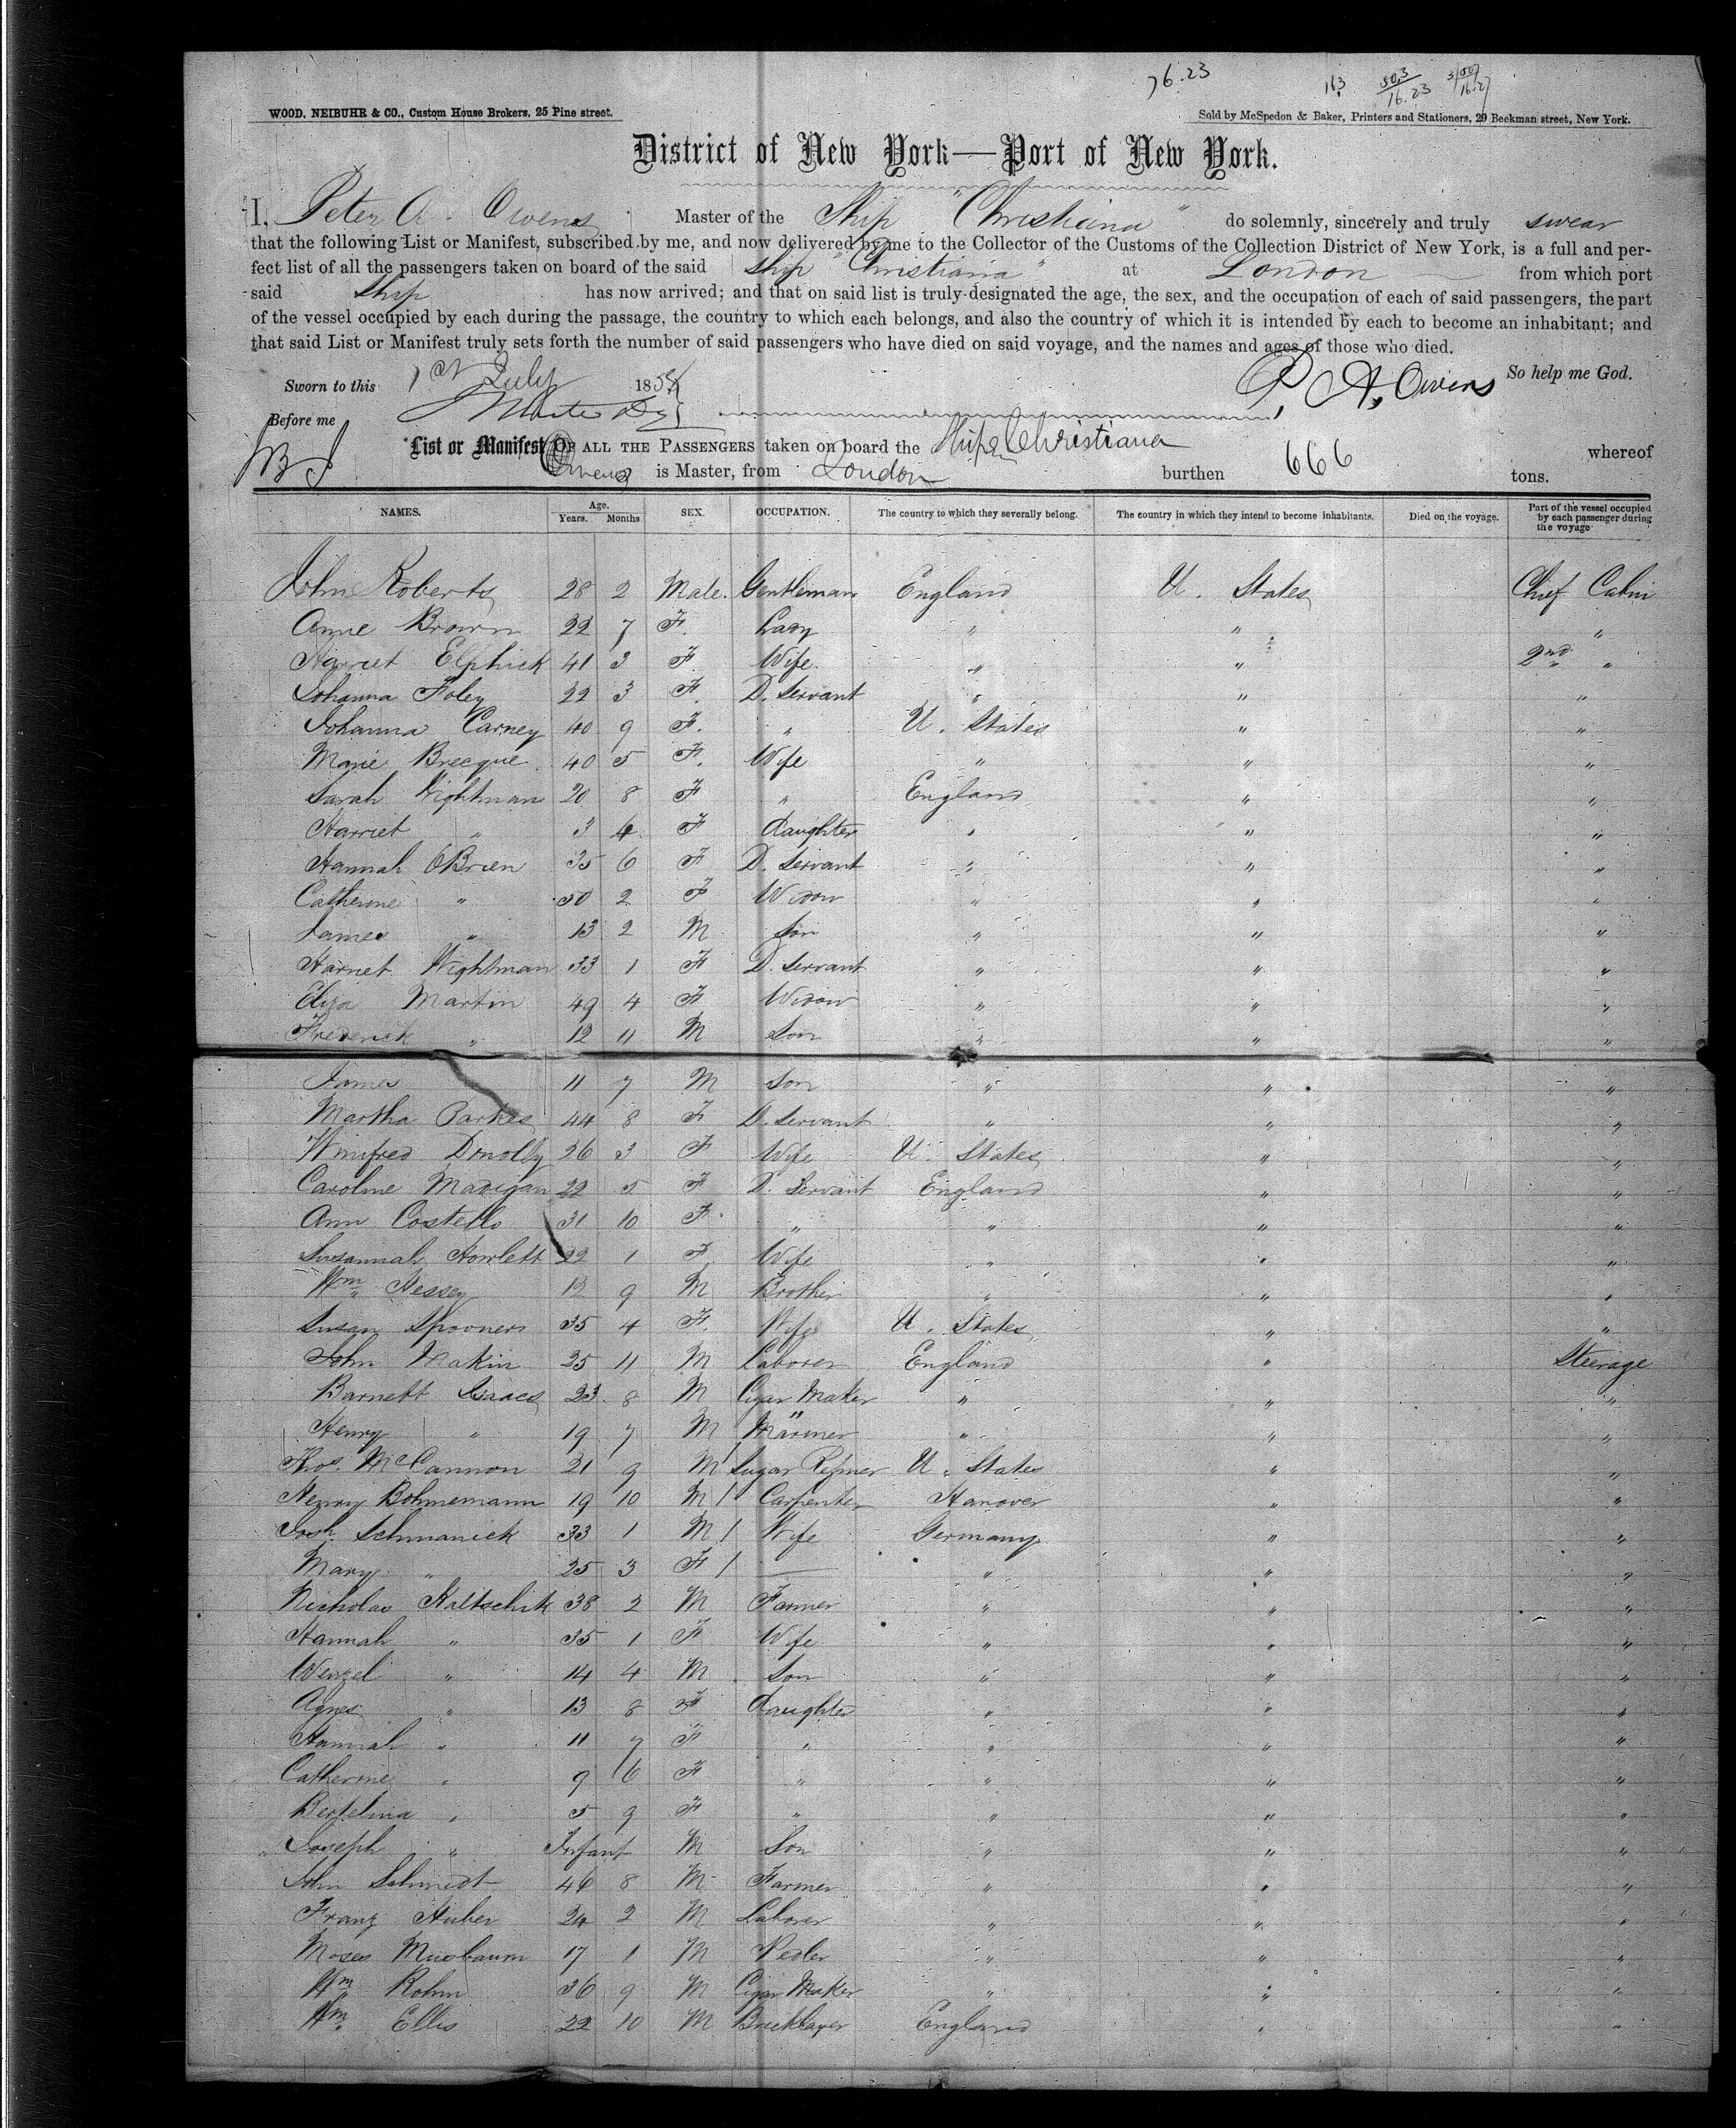 76.23
163 50.3 16.23
WOOD, NEIBUHR & CO., Custom House Brokers, 25 Pine street.
Sold by McSpedon & Baker, Printers and Stationers, 29 Beekman street, New York.
District of New York—Port of New York.
I, Peter A. Owens Master of the Ship "Christiana" do solemnly, sincerely and truly swear
that the following List or Manifest, subscribed by me, and now delivered by me to the Collector of the Customs of the Collection District of New York, is a full and per-
fect list of all the passengers taken on board of the said ship "Christiana" at London from which port
said ship has now arrived; and that on said list is truly designated the age, the sex, and the occupation of each of said passengers, the part
of the vessel occupied by each during the passage, the country to which each belongs, and also the country of which it is intended by each to become an inhabitant; and
that said List or Manifest truly sets forth the number of said passengers who have died on said voyage, and the names and ages of those who died.
Sworn to this 1st July 185 P. A. Owens So help me God.
Before me
List or Manifest OF ALL THE PASSENGERS taken on board the Ship Christiana whereof
Owens is Master, from London burthen 666 tons.
NAMES. Age. Years. Months SEX. OCCUPATION. The country to which they severally belong. The country in which they intend to become inhabitants. Died on the voyage. Part of the vessel occupied by each passenger during the voyage
John Roberts 28 2 Male. Gentleman England U. States Chief Cabin
Anne Brown 22 7 F. Lady " " "
Harriet Elphick 41 3 F. Wife " " 2nd "
Johanna Foley 22 3 F. D. Servant " " "
Johanna Carney 40 9 F. " U. States " "
Marie Brecque 40 5 F. Wife " " "
Sarah Wightman 20 8 F " England " "
Harriet " 3 4 F daughter " " "
Hannah OBrien 35 6 F D. Servant " " "
Catherine " 50 2 F Widow " " "
James " 13 2 M Son " " "
Harriet Wightman 33 1 F D. Servant " " "
Eliza Martin 49 4 F Widow " " "
Frederick " 12 11 M Son " " "
James 11 7 M Son " " "
Martha Parkes 44 8 F D. Servant " " "
Winifred Donolly 26 3 F Wife U. States " "
Caroline Madigan 22 5 F D. Servant England " "
Ann Costello 31 10 F. " " " "
Susannah Howlett 22 1 F. Wife " " "
Wm Hessey 12 9 M Brother " " "
Susan Spooner 35 4 F. Wife U. States " "
John Makin 25 11 M Laborer England " Steerage
Barnett Isaacs 23 8 M Cigar Maker " " "
Henry " 19 7 M Mariner " " "
Thos. McCannon 21 9 M Sugar Refiner U. States " "
Henry Bohnemann 19 10 M Carpenter Hanover " "
Josh. Schmanick 33 1 M Wife Germany " "
Mary " 25 3 F — " " "
Nicholas Kaltschik 38 2 M Farmer " " "
Hannah " 35 1 F Wife " " "
Wenzel " 14 4 M Son " " "
Agnes " 13 8 F daughter " " "
Hannah " 11 7 F " " " "
Catherine " 9 6 F " " " "
Bertelina " 5 9 F " " " "
Joseph " Infant M Son " " "
John Schmidt 46 8 M Farmer " " "
Franz Huber 24 2 M Laborer " " "
Moses Musbaum 17 1 M Pedler " " "
Wm Rohm 36 9 M Cigar Maker " " "
Wm Ellis 22 10 M Bricklayer England " "